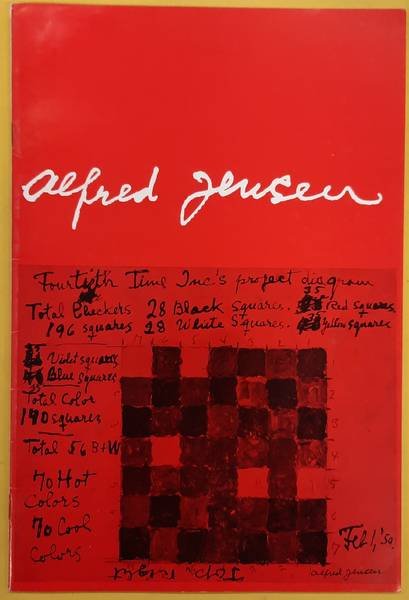 alfred Jensen
Fourtieth Time Inc's project diagram
Total Checkers 28 Black Squares. 35 Red Squares
196 squares 28 White Squares. Yellow squares
Violet squares
Blue Squares
35
Total Color
140 squares
Total 56 B+W
70 Hot
Colors
70 Cool
Colors
Feb 1,
alfred Jensen